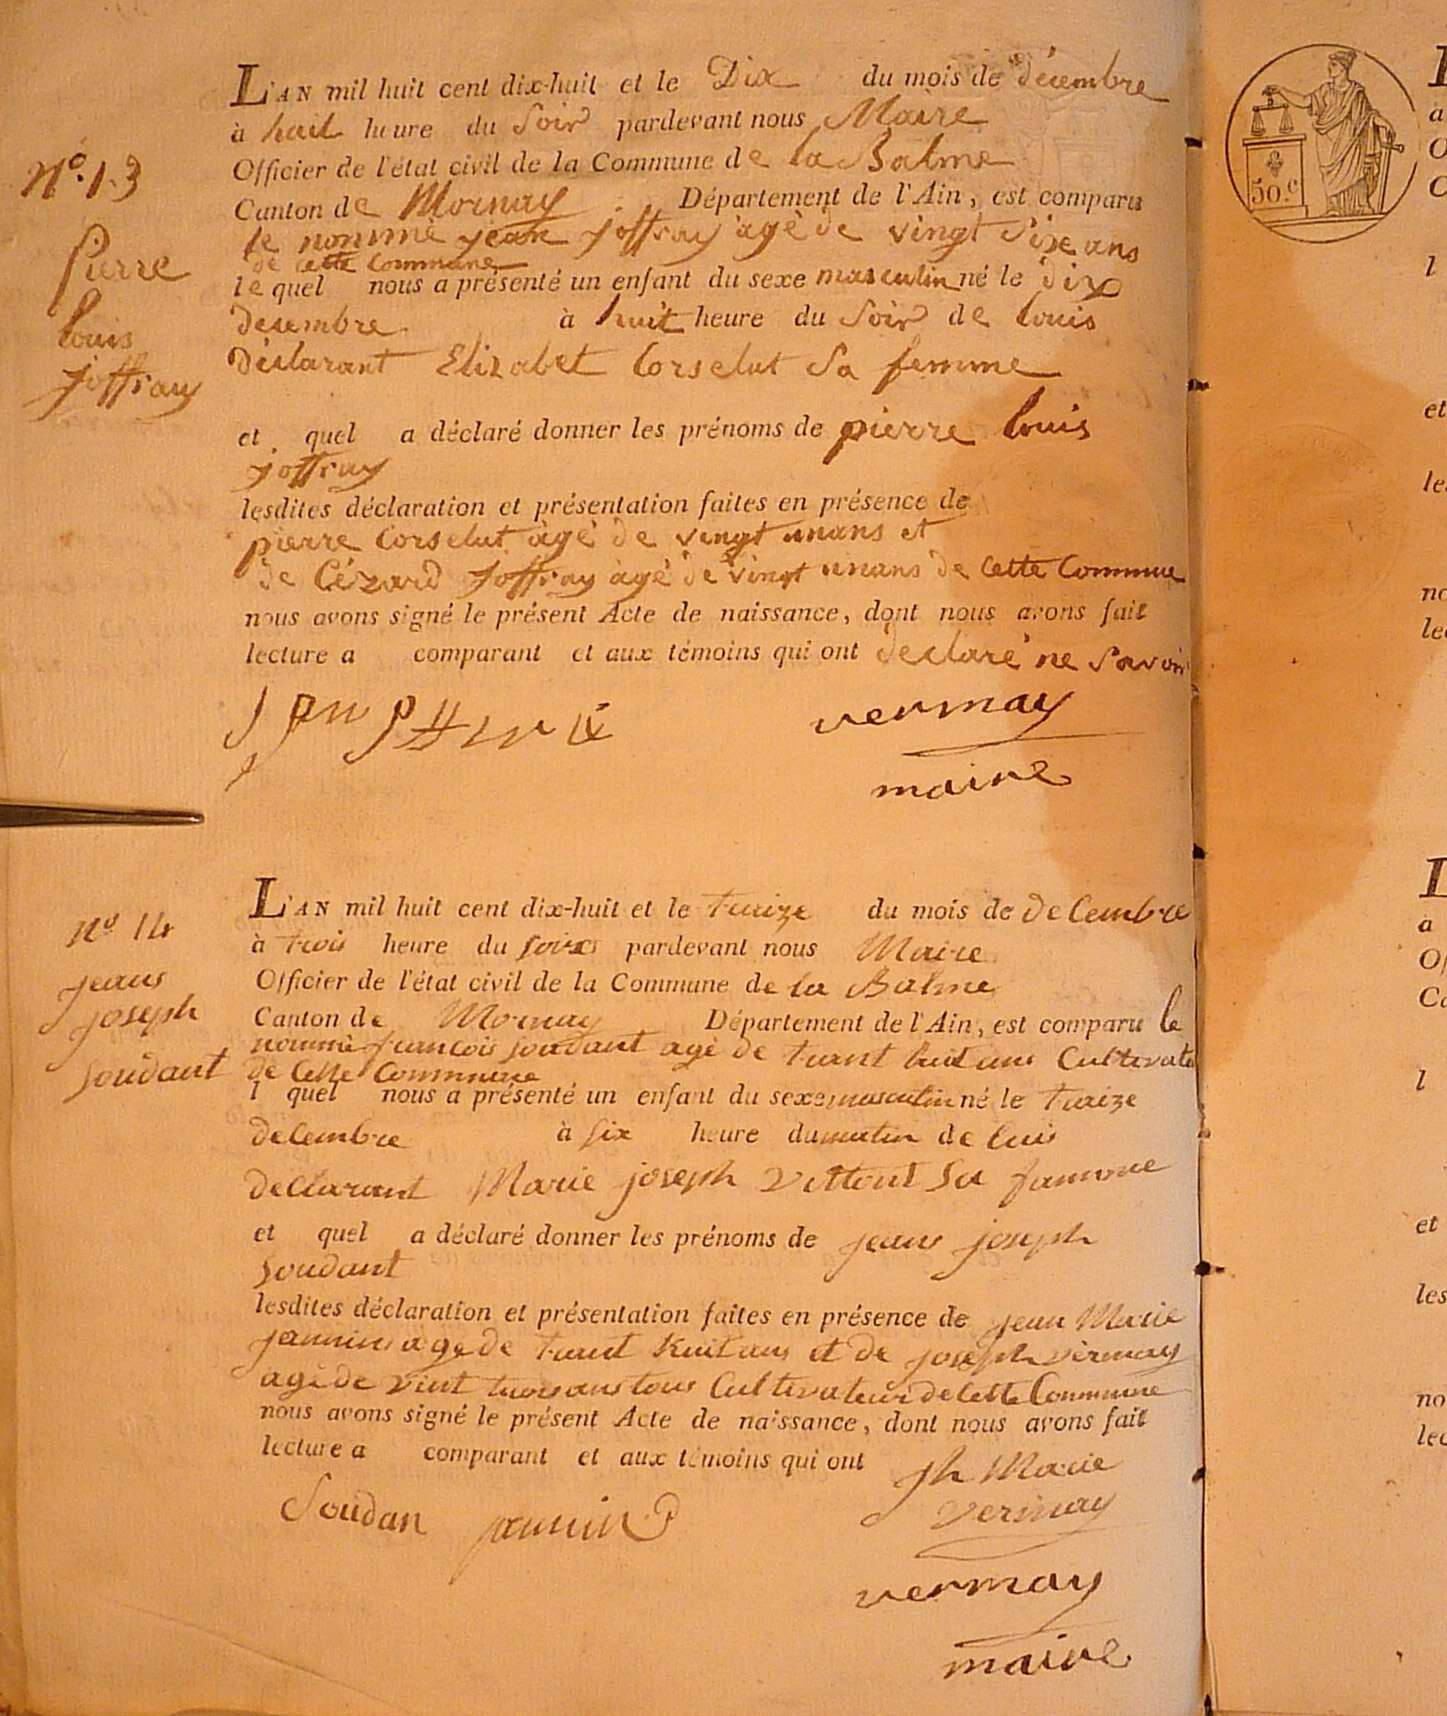 L'AN mil huit cent dix-huit et le Dix du mois de décembre
à huit heure du Soir pardevant nous Maire
Officier de l'état civil de la Commune de la Balme
Canton de Mornay Département de l'Ain, est comparu
le nommé jean joffray agé de vingt Sixe ans
de cette commune
lequel nous a présenté un enfant du sexe masculin né le dix
decembre à huit heure du Soir de louis
déclarant Elizabet Corselut Sa femme
et quel a déclaré donner les prénoms de pierre louis
joffray
lesdites déclaration et présentation faites en présence de
pierre Corselut àgé de vingt unans et
de Cézard joffray àgé de vingt unans de cette Commune
nous avons signé le présent Acte de naissance, dont nous avons fait
lecture a comparant et aux témoins qui ont declaré ne Savoir
vermay
maire
N.º 13
Pierre
louis
joffray
L'AN mil huit cent dix-huit et le traize du mois de decembre
à trois heure du soire pardevant nous Maire
Officier de l'état civil de la Commune de la Balme
Canton de Mornay Département de l'Ain, est comparu le
nommé francois soudant agé de trant huit ans Cultivate
de Cette Commune
l quel nous a présenté un enfant du sexe masculin né le traize
decembre à six heure du matin de luis
declarant Marie joseph Vittout Sa famme
et quel a déclaré donner les prénoms de jeans joseph
soudant
lesdites déclaration et présentation faites en présence de jean Marie
jannin age de trant huit ans et de joseph vermay
agé de vint trois ans tous Cultivateur de Cette Commune
nous avons signé le présent Acte de naissance, dont nous avons fait
lecture a comparant et aux témoins qui ont
jh Marie
Soudan jannin vermay
vermay
maire
nº 14
jeans
joseph
soudant
50.c